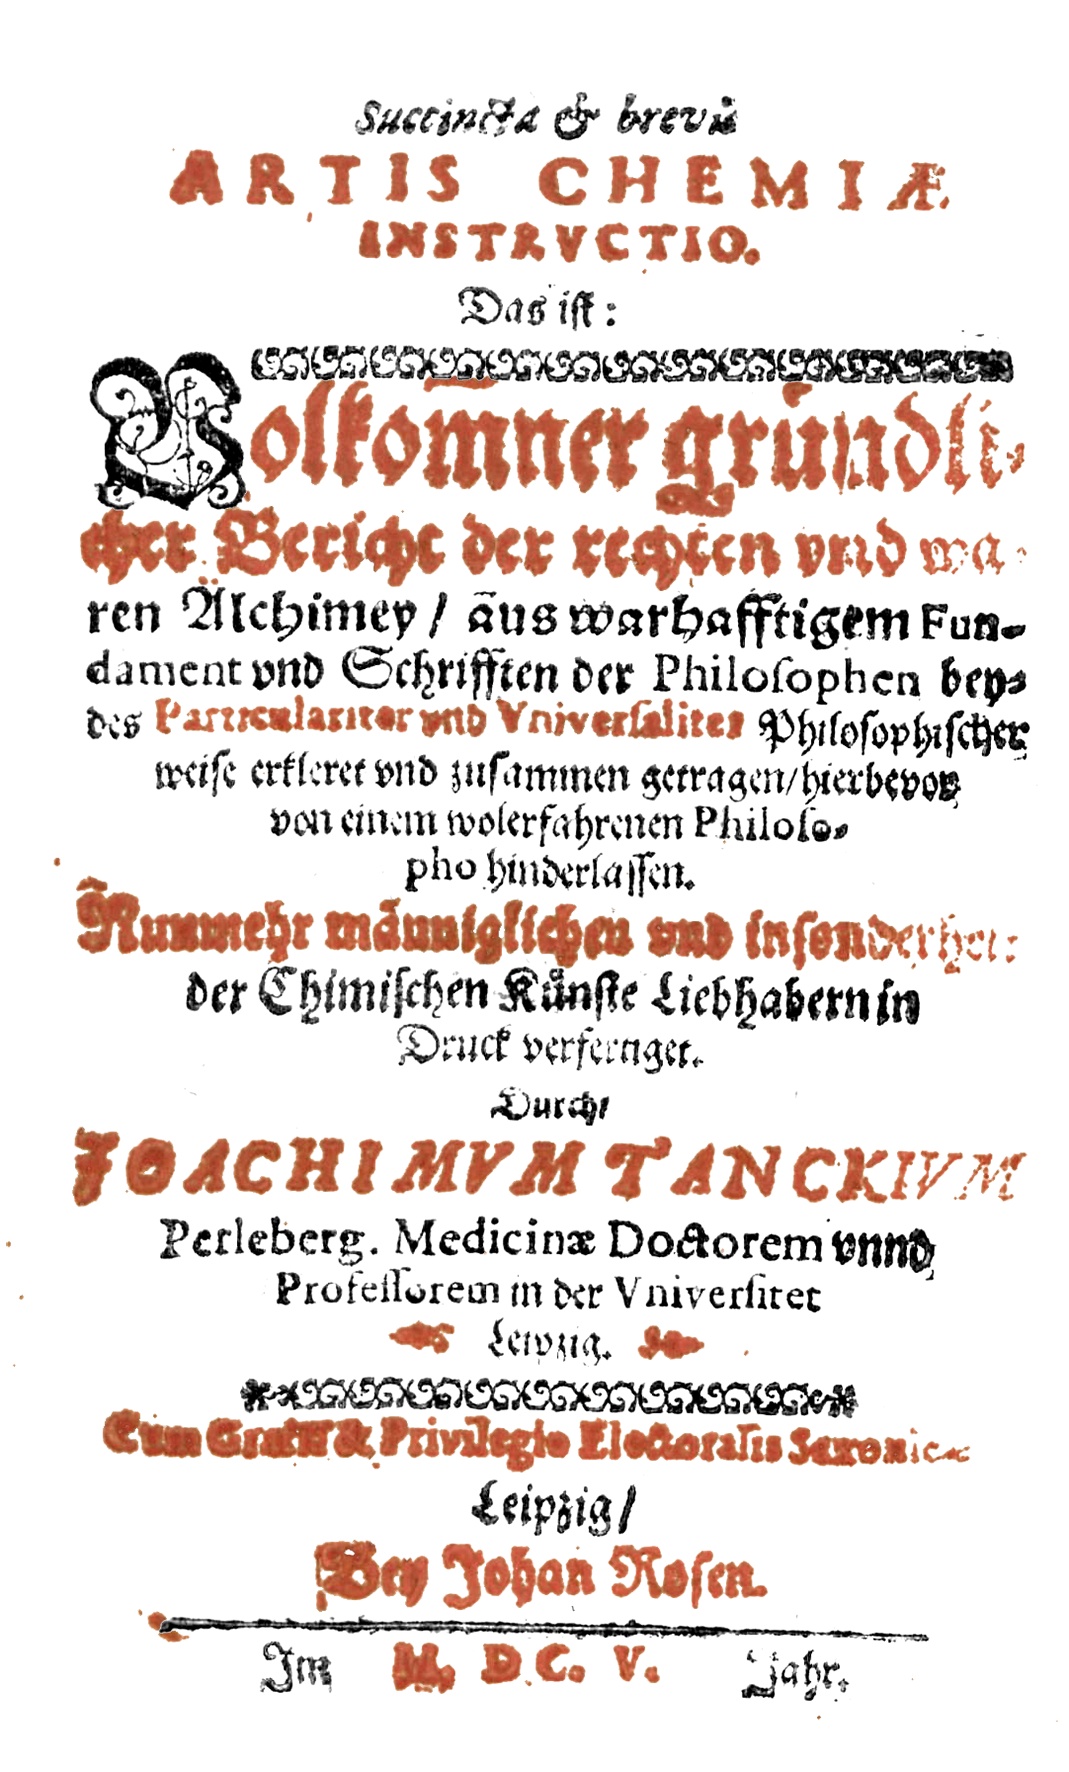 Succincta & brevis
ARTIS CHEMIÆ
INSTRVCTIO.
Das ist:
Volkom̃ner gründli-
cher Bericht der rechten vnd wa-
ren Alchimey / aus warhafftigem Fun-
dament vnd Schrifften der Philosophen bey-
des Particulariter vnd Vniversaliter Philosophischer
weise erkleret vnd zusammen getragen / hierbevor
von einem wolerfahrenen Philoso-
pho hinderlassen.
Nunmehr männiglichen vnd insonderheit
der Chimischen Künste Liebhabern in
Druck verfertiget.
Durch
JOACHIMVM TANCKIVM
Perleberg. Medicinæ Doctorem vnnd
Professorem in der Vniversitet
Leipzig.
Cum Gratia & Privilegio Electoralis Saxonicæ
Leipzig /
Bey Johan Rosen.
Im M. D C. V. Jahr.